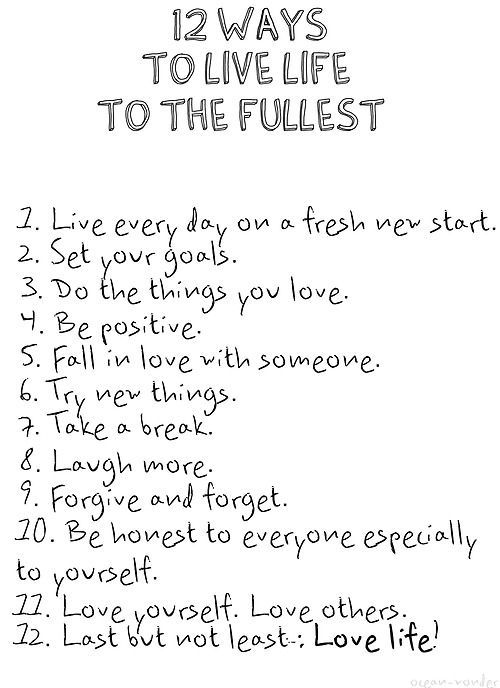 12 WAYS
TO LIVE LIFE
TO THE FULLEST
1. Live every day on a fresh new start.
2. Set your goals.
3. Do the things you love.
4. Be positive.
5. Fall in love with someone.
6. Try new things.
7. Take a break.
8. Laugh more.
9. Forgive and forget.
10. Be honest to everyone especially
to yourself.
11. Love yourself. Love others.
12. Last but not least..: Love life!